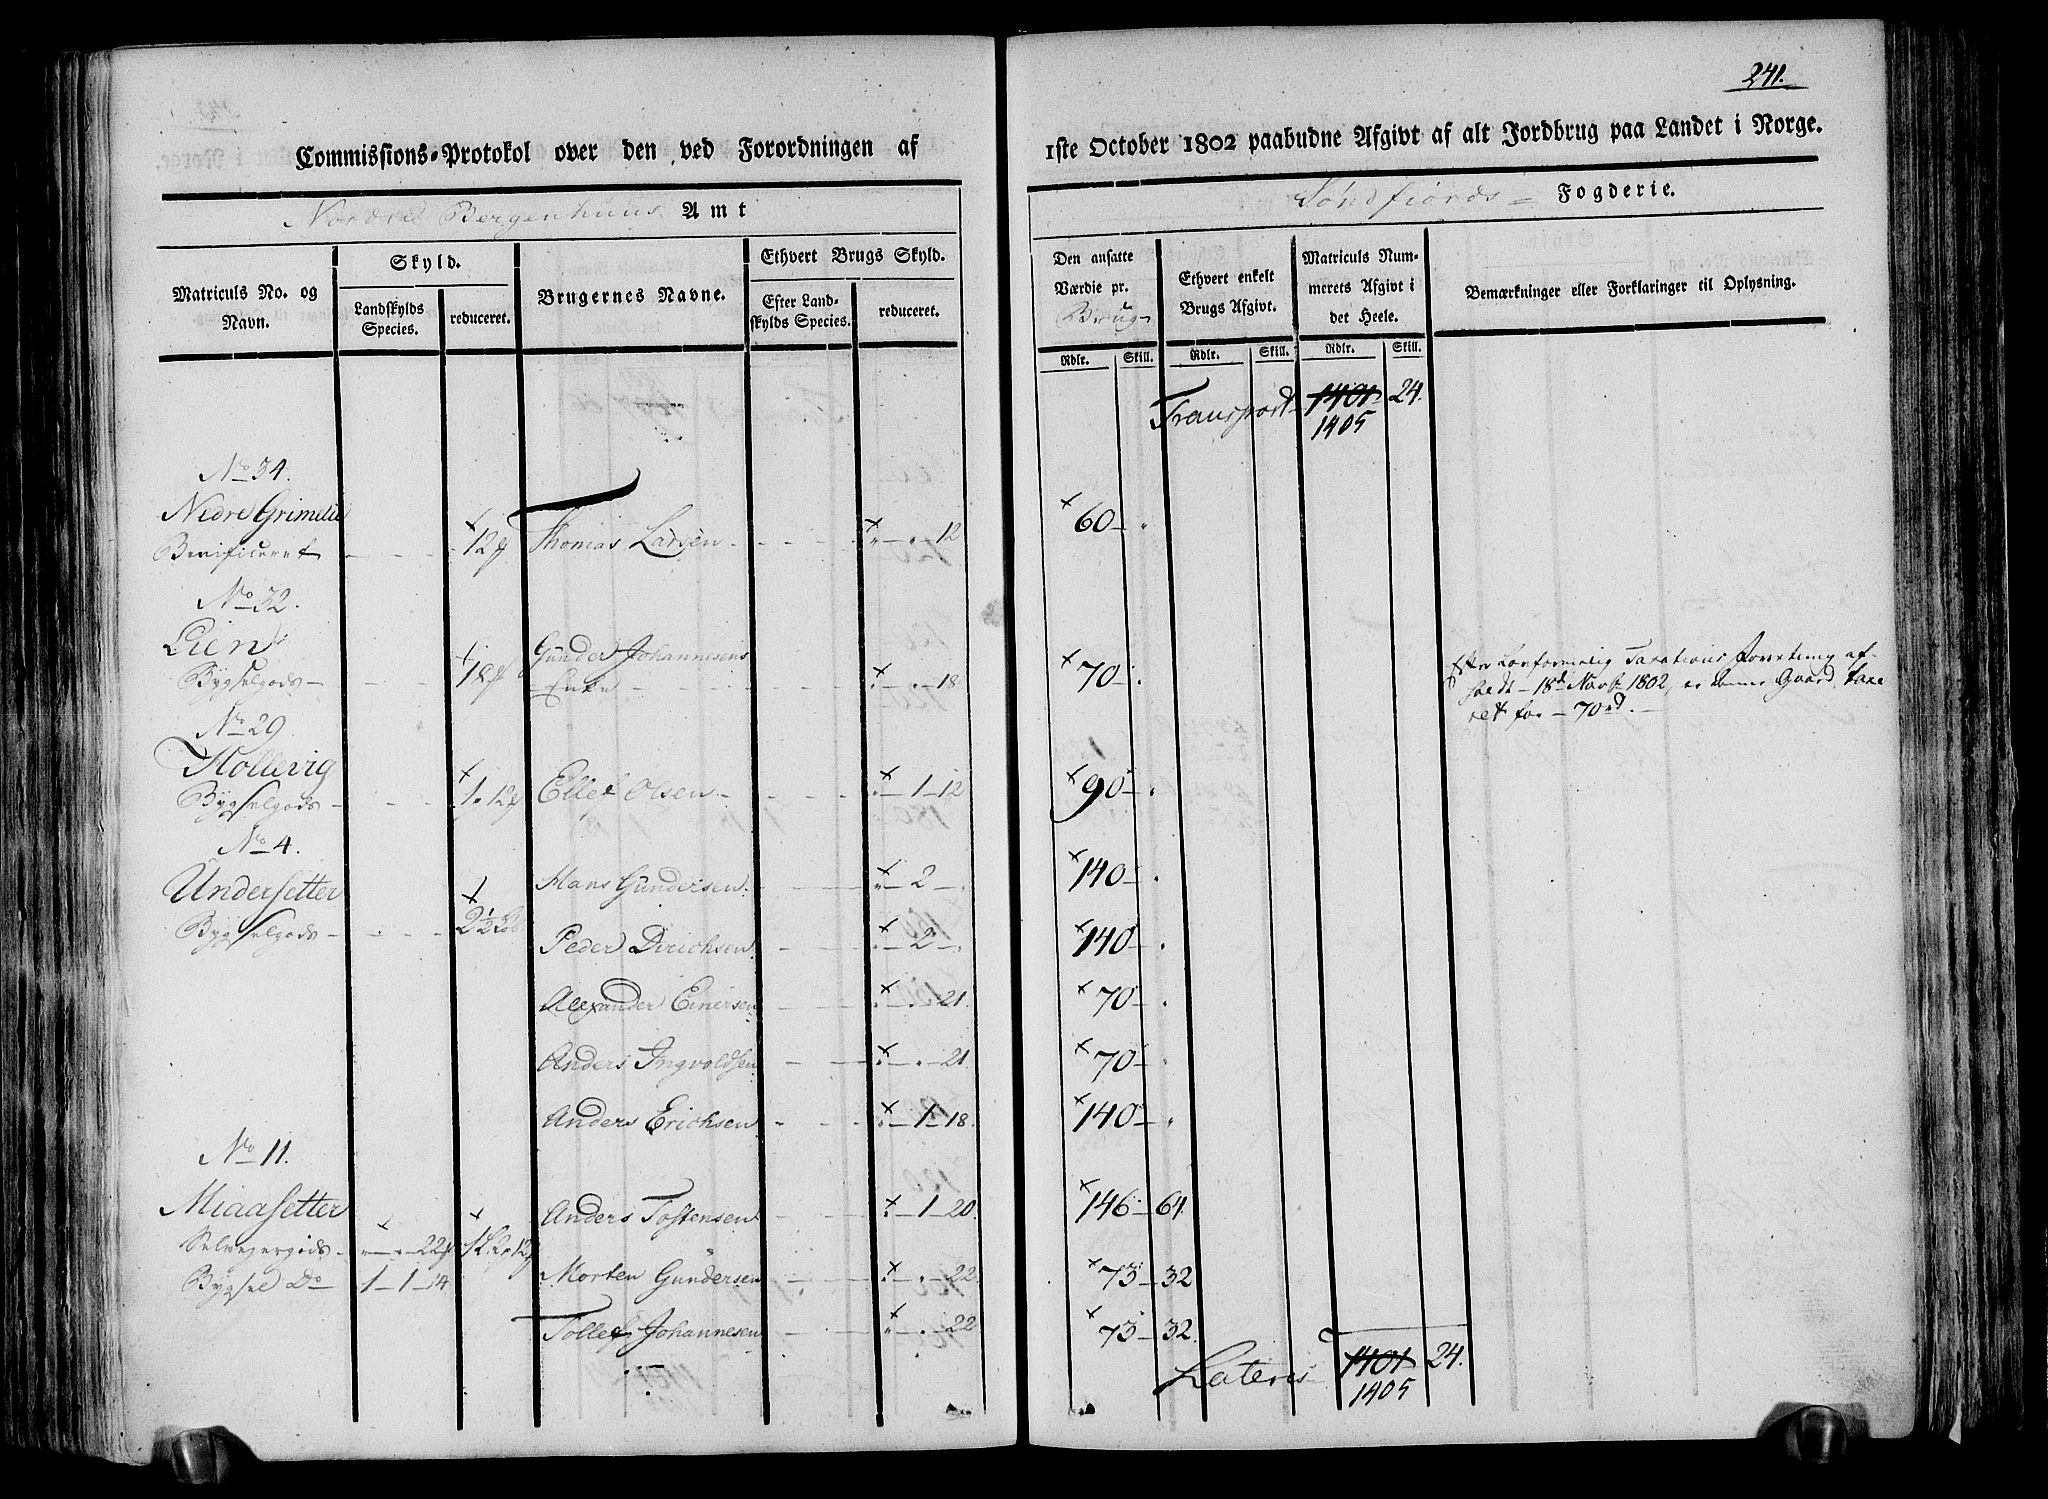 241.
Commissions-Protokol over den ved Forordningen af
1ste October 1802 paabudne Afgivt af alt Jordbrug paa Landet i Norge.
Nordre Bergenhuus Amt
Søndfiords Fogderie.
Matriculs No. og Navn.
Skyld.
Landskylds Species.
reduceret.
Brugernes Navne.
Ethvert Brugs Skyld.
Efter Landskylds Species.
reduceret.
Den ansatte Værdie pr. Brug
Ethvert enkelt Brugs Afgivt.
Matriculs Nummerets Afgivt i det Heele.
Bemærkninger eller Forklaringer til Oplysning.
Rdlr. Skill. Rdlr. Skill. Rdlr. Skill.
Transport 1401 24.
1405
No 34.
Nedre Grimelie
Benificeret 12 Thomas Larsen 12 60
No 32.
Lien
Bygselgods 18 Gunder Johannesens Enke 18 70
Efter Lovformelig Taxations Forretning af-
holdt 18de Novbr 1802, er denne Gaard taxe
ret for 70rd.
No 29.
Hollevig
Bygselgods 1. 12 Ellef Olsen 1 12 90
No 4.
Undersetter Hans Gundersen 2 140
Bygselgods 2½ Peder Dirichsen 2 140
Alexander Einersen 21. 70
Anders Ingvoldsen 21. 70
Anders Erichsen 1 18. 140
No 11.
Miaasetter Anders Tostensen 1 20. 146 64
Selveyergods 22 12 Morten Gundersen 22. 73 32
Bygsel Do 1 1 14
Tollef Johannesen 22 73 32.
Lateris 1401 24.
1405